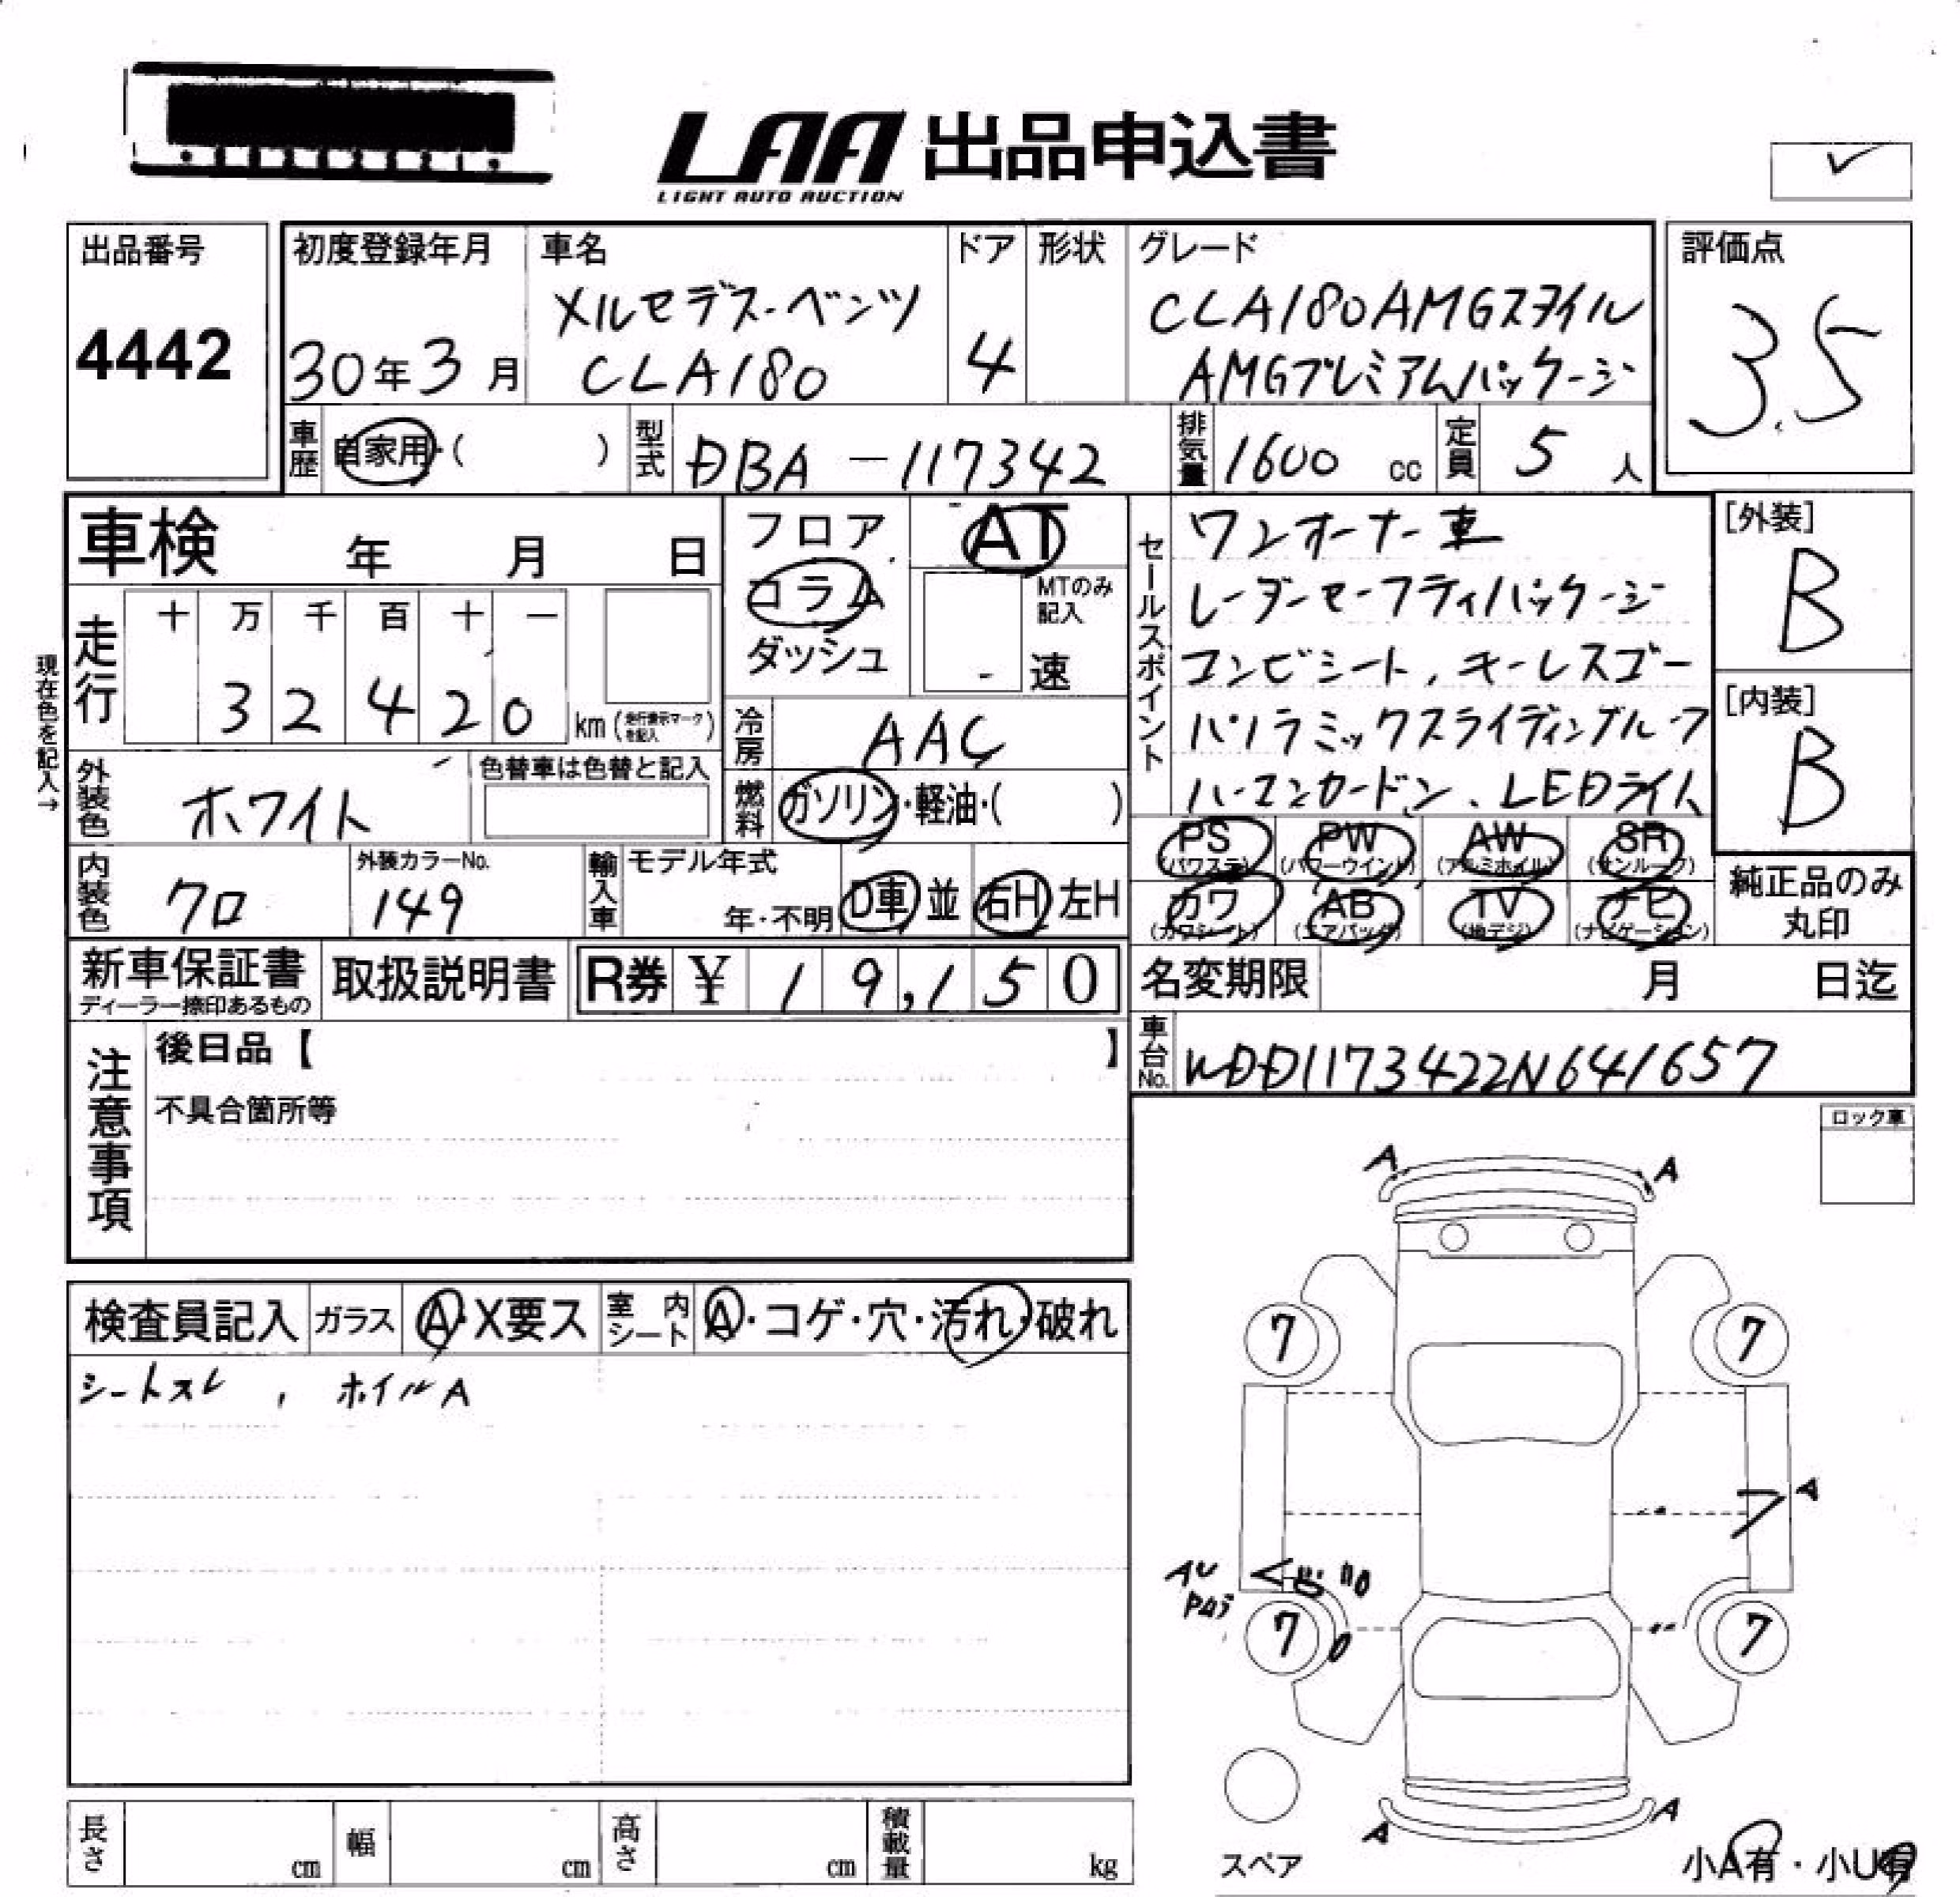 LAA 出品申込書
LIGHT AUTO AUCTION
出品番号
4442
初度登録年月
30年3月
車名
メルセデス-ベンツ
CLA180
ドア
4
形状
グレード
CLA180AMGスタイル
AMGプレミアムパッケージ
評価点
3.5
車歴
自家用・( )
型式
DBA-117342
排気量
1600 cc
定員
5 人
車検 年 月 日
フロア
コラム
ダッシュ
AT
MTのみ
記入
- 速
現在色を記入→
走行
十 万 千 百 十 一
3 2 4 2 0
km(走行表示マークを記入)
冷房
AAC
燃料
ガソリン・軽油・( )
外装色
ホワイト
色替車は色替と記入
内装色
クロ
外装カラーNo.
149
輸入車
モデル年式
年・不明
D車 並
右H 左H
セールスポイント
ワンオーナー車
レーダーセーフティパッケージ
コンビシート、キーレスゴー
パノラミックスライディングルーフ
ハーマンカードン、LEDライト
PS
(パワステ)
PW
(パワーウインド)
AW
(アルミホイル)
SR
(サンルーフ)
カワ
(カワシート)
AB
(エアバッグ)
TV
(地デジ)
ナビ
(ナビゲーション)
[外装]
B
[内装]
B
純正品のみ
丸印
新車保証書
ディーラー捺印あるもの
取扱説明書
R券 ¥ 19,150
名変期限 月 日迄
車台No.
WDD1173422N641657
注意事項
後日品【 】
不具合箇所等
ロック車
検査員記入
ガラス
A・X要ス
室内シート
A・コゲ・穴・汚れ・破れ
シートスレ , ホイルA
A
A
7
7
A
7
7
A
A
長さ cm
幅 cm
高さ cm
積載量 kg
スペア
小A有・小U有